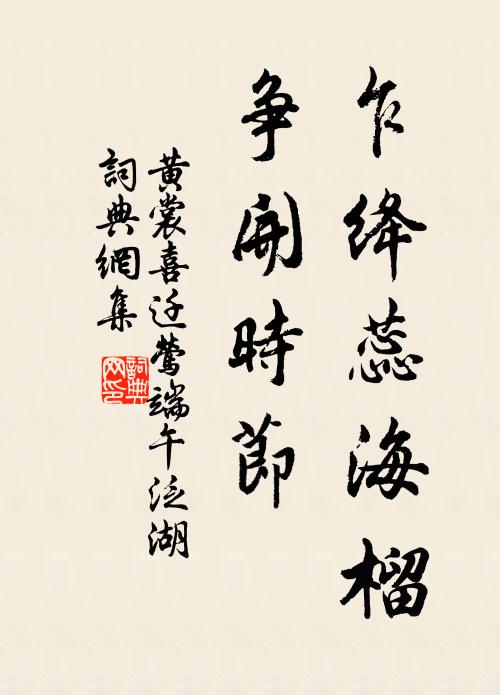 乍绛蕊海榴
争開時節
黄裳喜迁莺端午泛湖
詞典網集
詞典網印